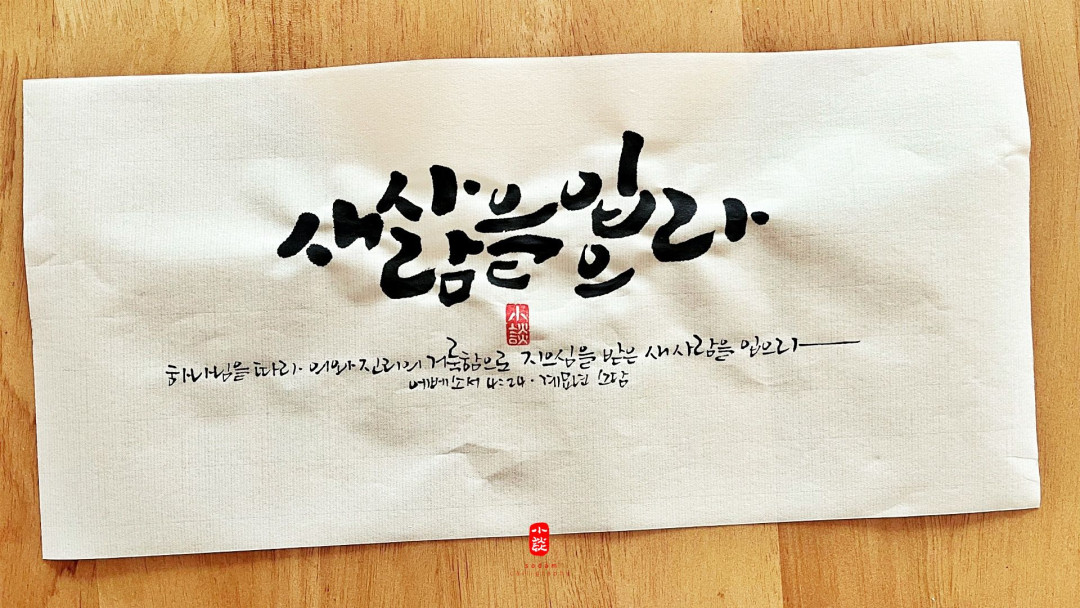 새사람을 입으라
小談
하나님을 따라 의와 진리의 거룩함으로 지으심을 받은 새사람을 입으라
에베소서 4:24 · 계묘년 소담
小談
sodam